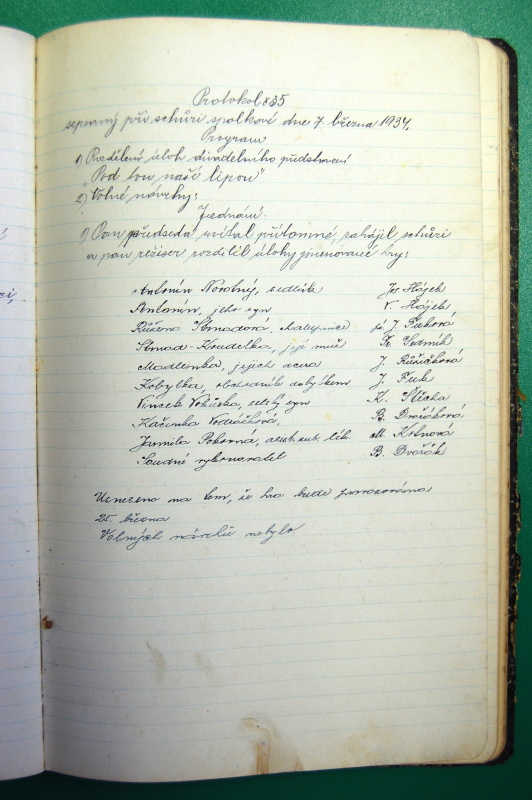 Protokol č 35
sepsaný při schůzi spolkové dne 7 března 1934.
Program
1) Rozdělení úloh divadelního představení
"Pod tou naší lipou"
2) Volné návrhy:
Jednání.
1) Pan předseda uvítal přítomné, zahájil schůzi
a pan režiser rozdělil úlohy jmenované hry:
Antonín Novotný, sedlák Jos Hájek
Antonín, jeho syn V. Hájek
Růžena Strnadová, sl. J. Fuková
Strnad-Koudelka, její muž Fr.
Madlenka, jejich dcera J. Růžičková
Kobylka, obchodník dobytkem J. Fuk
Vincek syn K. Štícha
Káčinka Vodráčková, B. Dvořáková
Jarmila Pokorná, M. Krsnová
Soudní vykonavatel B. Dvořák
Usneseno na tom, že hra bude provozována
25. března
Volných návrhů nebylo